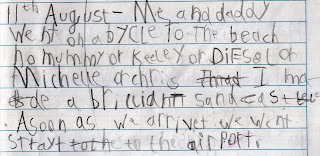 11th August - Me and daday
went on a bycle to the beach
no mummy or Keeley or DiESel or
Michelle or chris I ma
de a briliant sandcast
. Asoon as we arrivet we went
strayt to the airport.